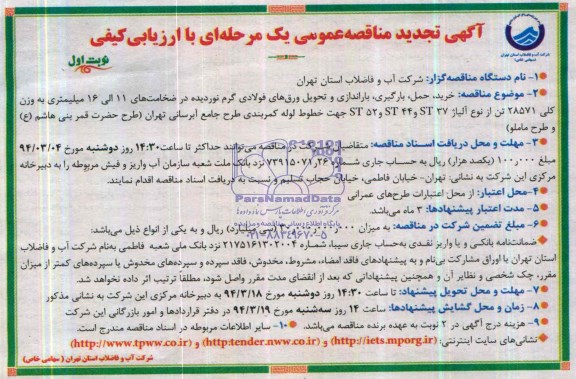 آگهی تجدید مناقصه‌عمومی یک مرحله‌ای با ارزیابی‌کیفی
نوبت اول
شرکت آب و فاضلاب استان تهران
(سهامی خاص)
۱- نام دستگاه مناقصه‌گزار: شرکت آب و فاضلاب استان تهران
۲- موضوع مناقصه: خرید، حمل، بارگیری، باراندازی و تحویل ورق‌های فولادی گرم نوردیده در ضخامت‌های ۱۱ الی ۱۶ میلیمتری به وزن
کلی ۲۸۵۷۱ تن از نوع آلیاژ ST ۳۷ و ST ۴۴ و ST ۵۲ جهت خطوط لوله کمربندی طرح جامع آبرسانی تهران (طرح حضرت قمر بنی هاشم (ع)
و طرح ماملو)
۳- مهلت و محل دریافت اسناد مناقصه: متقاضیان شرکت در مناقصه می‌توانند حداکثر تا ساعت ۱۴:۳۰ روز دوشنبه مورخ ۹۴/۰۳/۰۴
مبلغ ۱۰۰,۰۰۰ (یکصد هزار) ریال به حساب جاری نزد بانک ملت شعبه سازمان آب واریز و فیش مربوطه را به دبیرخانه
مرکزی این شرکت به نشانی: تهران- خیابان فاطمی، خیابان حجاب تسلیم و نسبت به دریافت اسناد مناقصه اقدام نمایند.
۴- محل اعتبار: از محل اعتبارات طرح‌های عمرانی
۵- مدت اعتبار پیشنهادها: ۳ ماه می‌باشد.
۶- مبلغ تضمین شرکت در مناقصه: به میزان ریال و به یکی از انواع ذیل می‌باشد:
ضمانت‌نامه بانکی و یا واریز نقدی به‌حساب جاری سیبا، شماره ۲۱۷۵۱۶۱۳۰۲۰۰۴ نزد بانک ملی شعبه فاطمی به‌نام شرکت آب و فاضلاب
استان تهران یا اوراق مشارکت بی‌نام و به پیشنهادهای فاقد امضاء، مشروط، مخدوش، فاقد سپرده و سپرده‌های مخدوش یا سپرده‌های کمتر از میزان
مقرر، چک شخصی و نظایر آن و همچنین پیشنهاداتی که بعد از انقضای مدت مقرر واصل شود، مطلقا ترتیب اثر داده نخواهد شد.
۷- مهلت و محل تحویل پیشنهاد: تا ساعت ۱۴:۳۰ روز دوشنبه مورخ ۹۴/۳/۱۸ به دبیرخانه مرکزی این شرکت به نشانی مذکور
۸- زمان و محل گشایش پیشنهادها: ساعت ۱۴ روز سه‌شنبه مورخ ۹۴/۳/۱۹ در دفتر قراردادها و امور بازرگانی این شرکت
۹- هزینه درج آگهی در ۲ نوبت به عهده برنده مناقصه می‌باشد. ۱۰- سایر اطلاعات مربوطه در اسناد مناقصه مندرج است.
نشانی‌های سایت اینترنتی: (http://iets.mporg.ir) و (http:tender.nww.co.ir) و (http://www.tpww.co.ir)
شرکت آب و فاضلاب استان تهران (سهامی خاص)